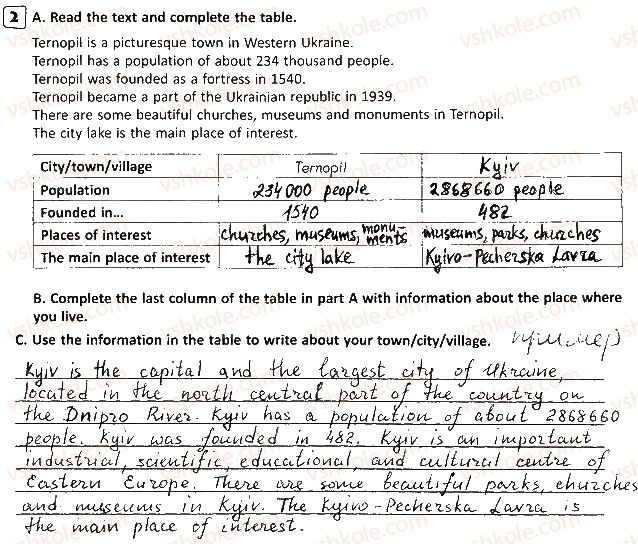 2 A. Read the text and complete the table.
Ternopil is a picturesque town in Western Ukraine.
Ternopil has a population of about 234 thousand people.
Ternopil was founded as a fortress in 1540.
Ternopil became a part of the Ukrainian republic in 1939.
There are some beautiful churches, museums and monuments in Ternopil.
The city lake is the main place of interest.
City/town/village Ternopil Kyiv
Population 234 000 people 2868660 people
Founded in... 1540 482
Places of interest churches, museums, monu-ments museums, parks, churches
The main place of interest the city lake Kyivo-Pecherska Lavra
B. Complete the last column of the table in part A with information about the place where
you live.
C. Use the information in the table to write about your town/city/village. пример
Kyiv is the capital and the largest city of Ukraine,
located in the north central part of the country on
the Dnipro River. Kyiv has a population of about 2868660
people. Kyiv was founded in 482. Kyiv is an important
industrial, scientific, educational, and cultural centre of
Eastern Europe. There are some beautiful parks, churches
and museums in Kyiv. The Kyivo-Pecherska Lavra is
the main place of interest.